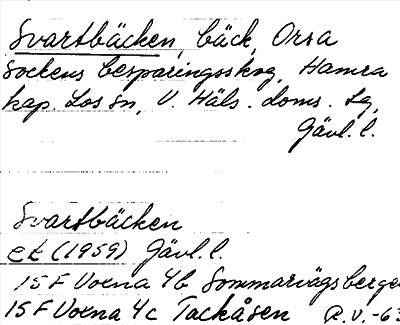 Svartbäcken, bäck, Orsa
Sockens besparingsskog, Hamra
kap. Los sn, V. Häls. doms. tg,
Gävl. l.
Svartbäcken
ek (1959) Gävl. l.
15 F Voxna 4b Sommarvägsberget
15 F Voxna 4c Tackåsen R.V.-63